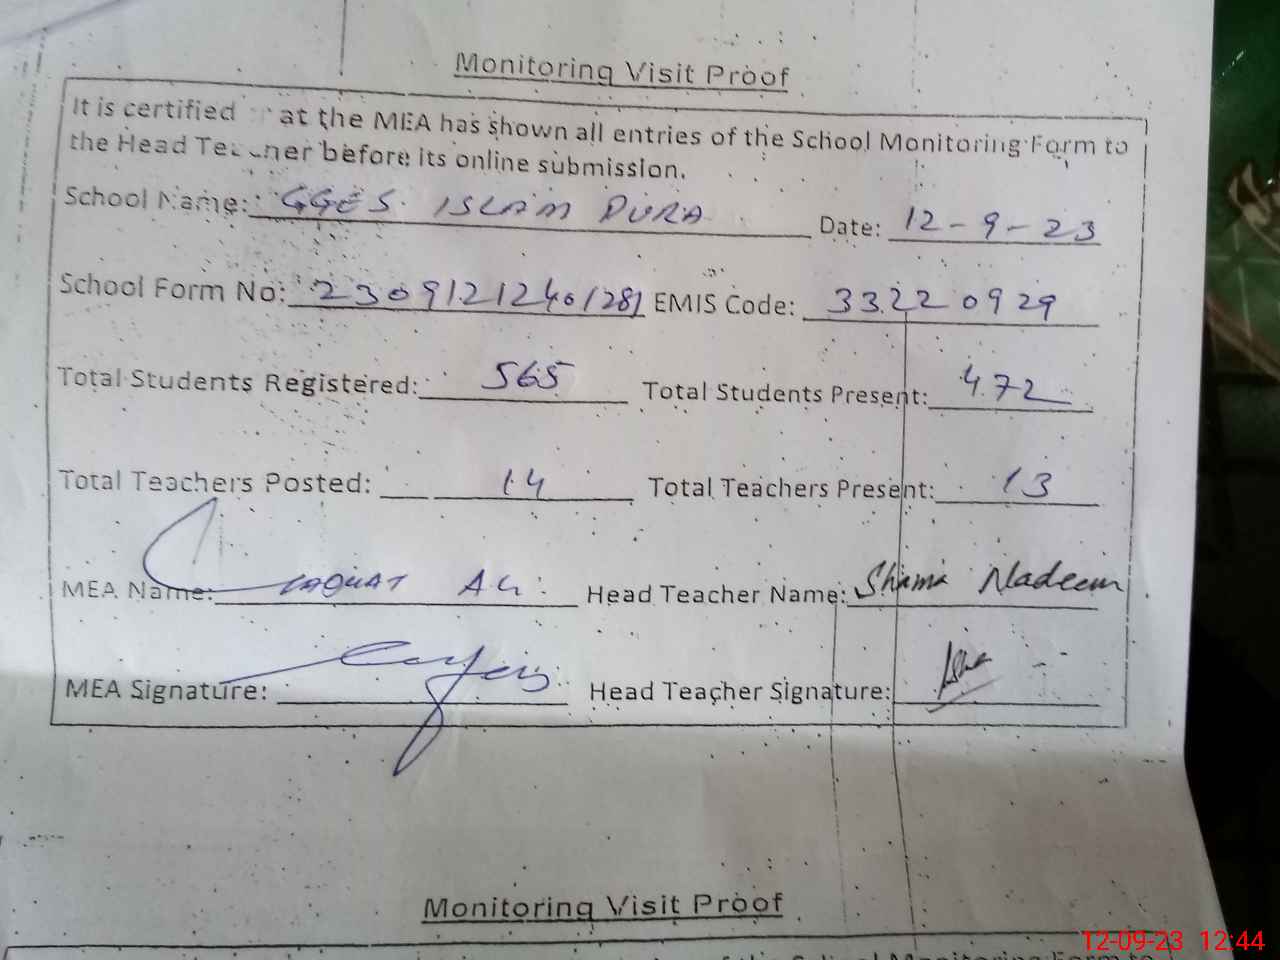 Monitoring Visit Proof
It is certified at the MEA has shown all entries of the School Monitoring Form to
the Head Teacher before its online submission.
School Name: GGES ISLAM PURA Date: 12-9-23
School Form No: 2309121240128 EMIS Code: 33220929
Total Students Registered: 565 Total Students Present: 472
Total Teachers Posted: 14 Total Teachers Present: 13
MEA Name: LAQUAT ALI Head Teacher Name: Shama Nadeem
MEA Signature: Head Teacher Signature:
Monitoring Visit Proof
12-09-23 12:44